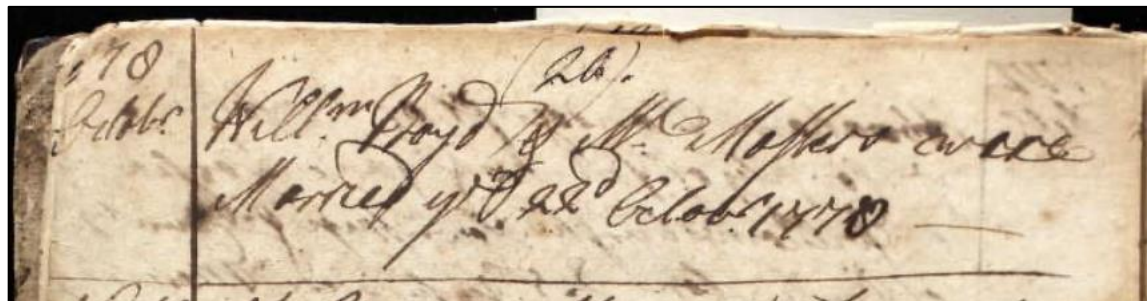 (26).
178
Octobr.
Will.m Boyd & Mc Masters ware
Married ye 22d Octobr. 1778